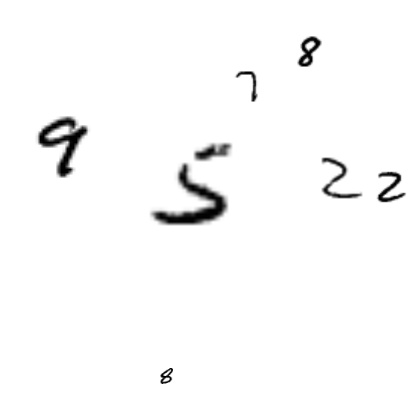 8
7
9
5
2 2
8